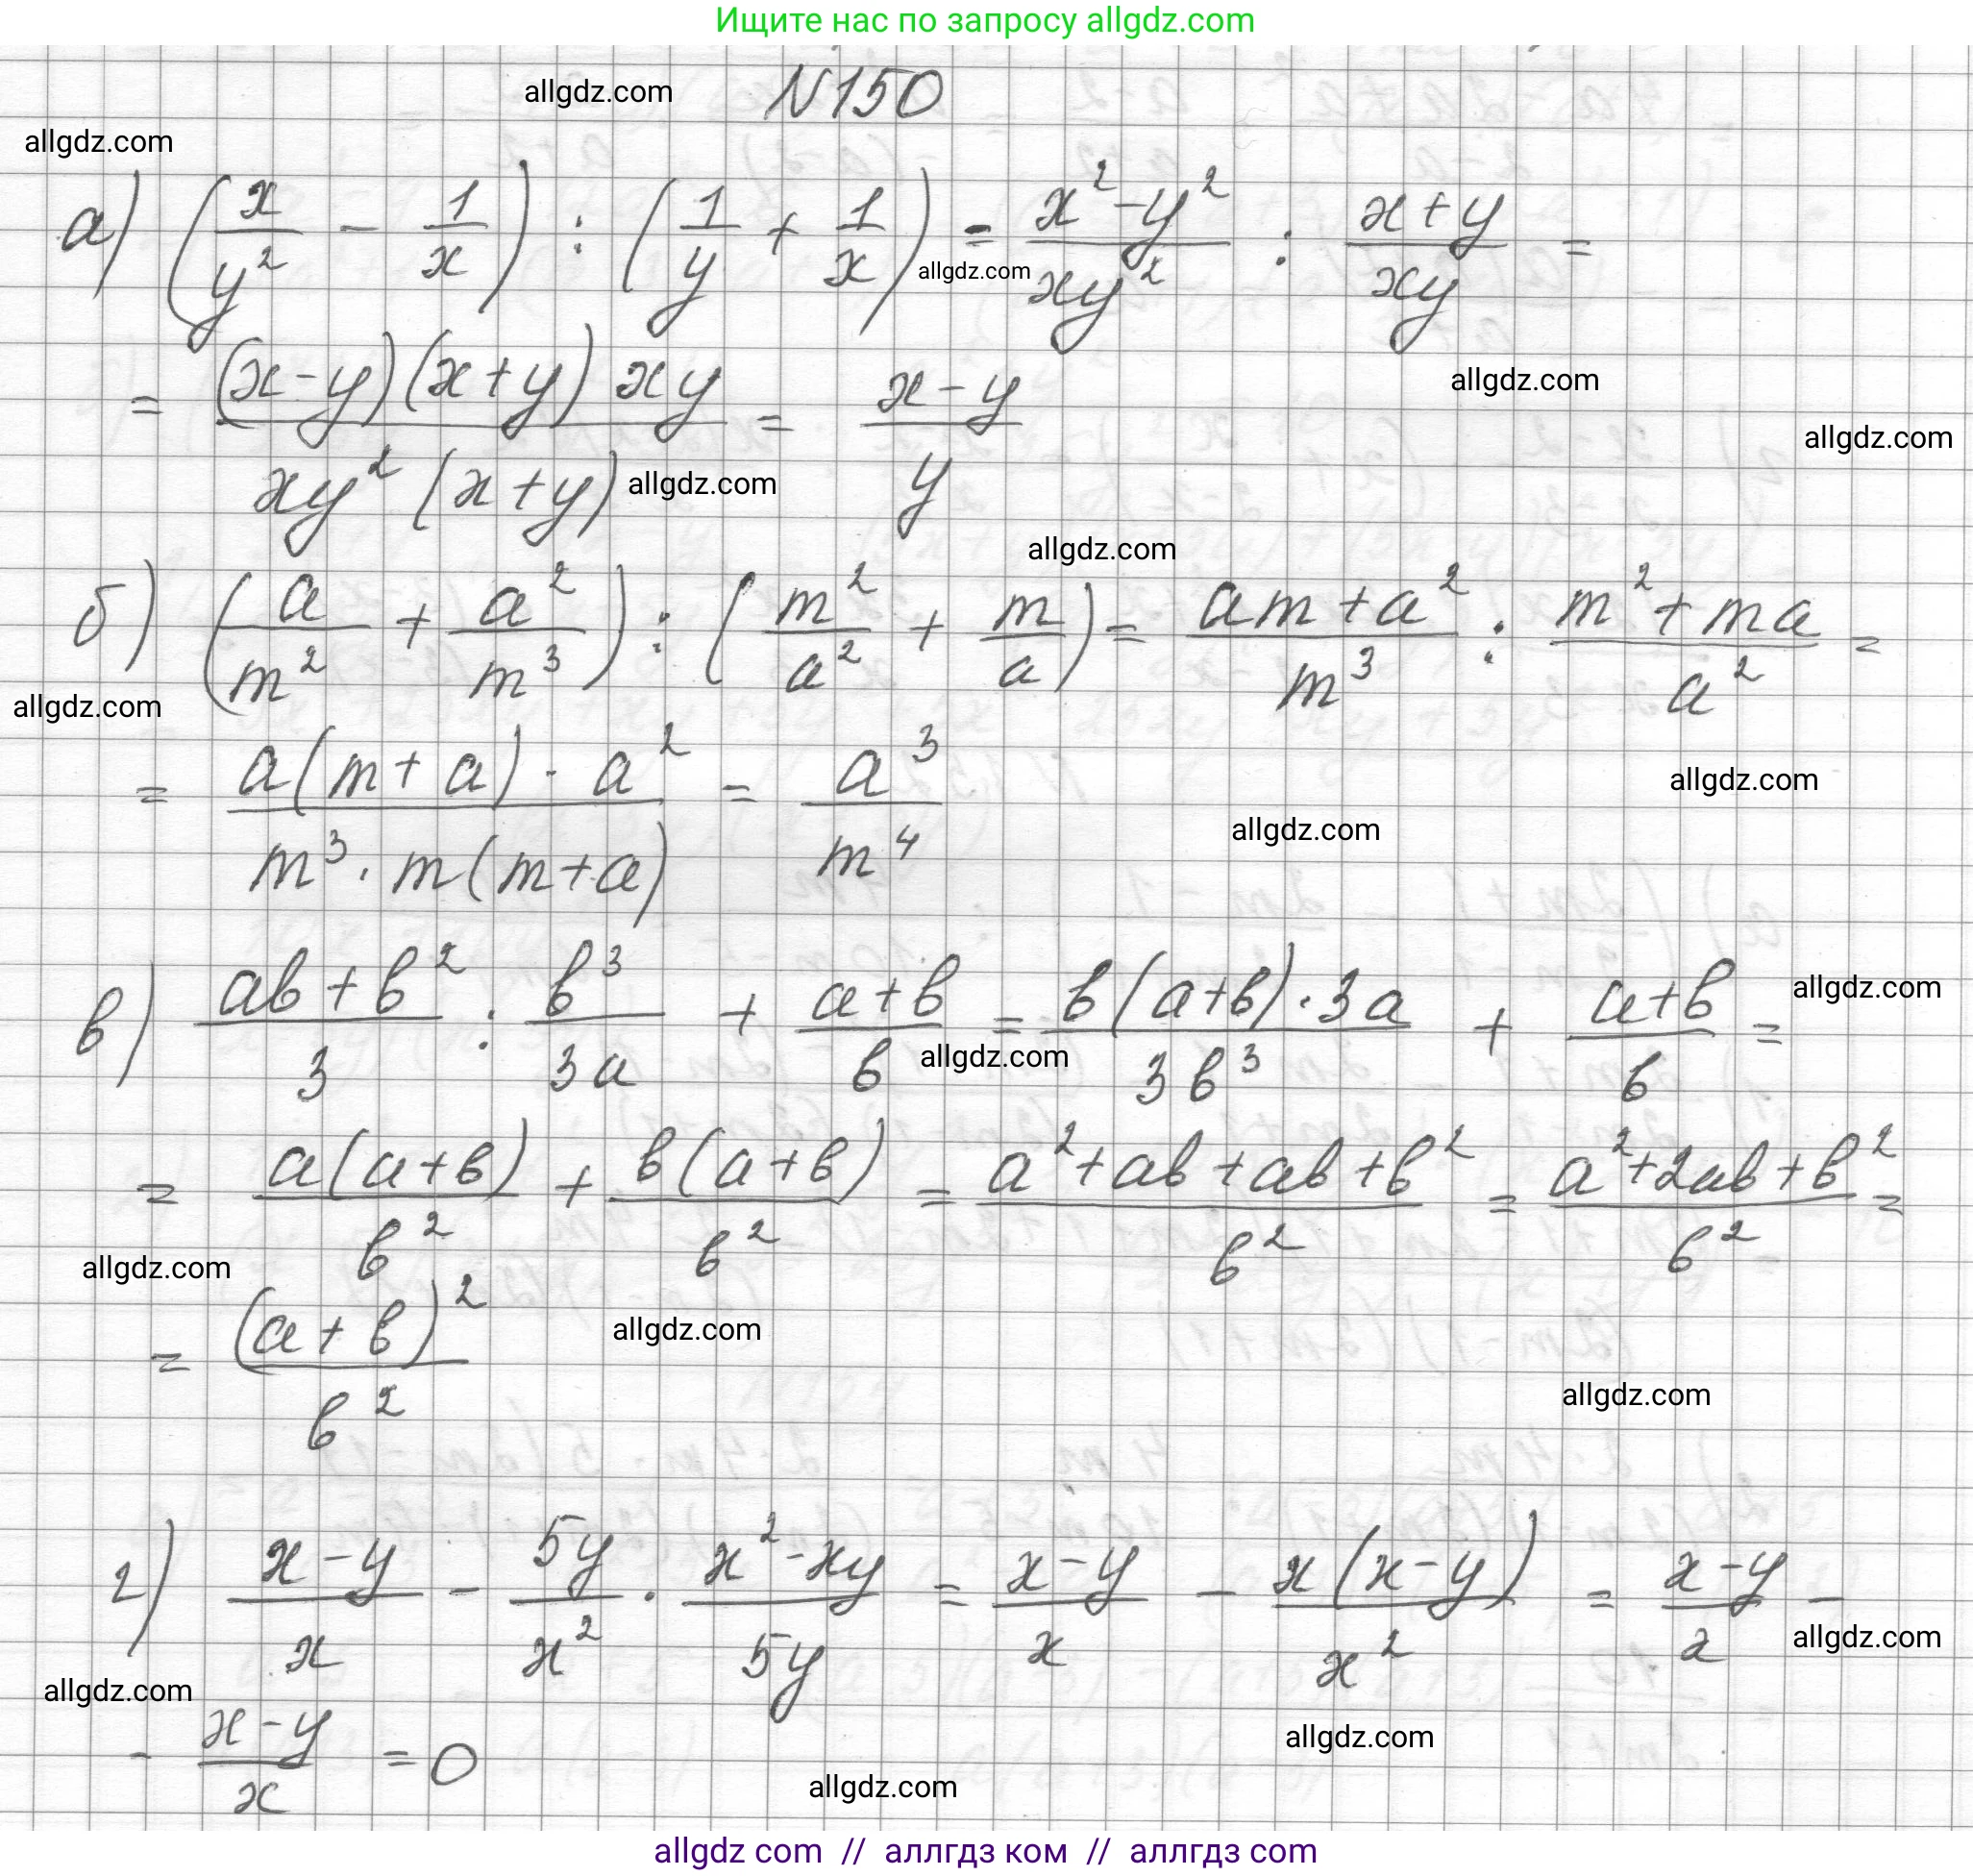 Ищите нас по запросу allgdz.com
allgdz.com
N150
allgdz.com
а) (x/y² - 1/x) : (1/y + 1/x) = (x²-y²)/(xy²) : (x+y)/(xy) =
allgdz.com
= ((x-y)(x+y)xy)/(xy²(x+y)) = (x-y)/y
allgdz.com
allgdz.com
allgdz.com
allgdz.com
б) (a/m² + a²/m³) : (m²/a² + m/a) = (am+a²)/m³ : (m²+ma)/a² =
allgdz.com
= (a(m+a)·a²)/(m³·m(m+a)) = a³/m⁴
allgdz.com
allgdz.com
в) (ab+b²)/3 : b³/3a + (a+b)/b = (b(a+b)·3a)/3b³ + (a+b)/b =
allgdz.com
allgdz.com
= a(a+b)/b² + b(a+b)/b² = (a²+ab+ab+b²)/b² = (a²+2ab+b²)/b² =
allgdz.com
= (a+b)²/b²
allgdz.com
allgdz.com
г) (x-y)/x - 5y/x² · (x²-xy)/5y = (x-y)/x - x(x-y)/x² = (x-y)/x -
allgdz.com
allgdz.com
- (x-y)/x = 0
allgdz.com
allgdz.com
allgdz com // аллгдз ком // аллгдз com